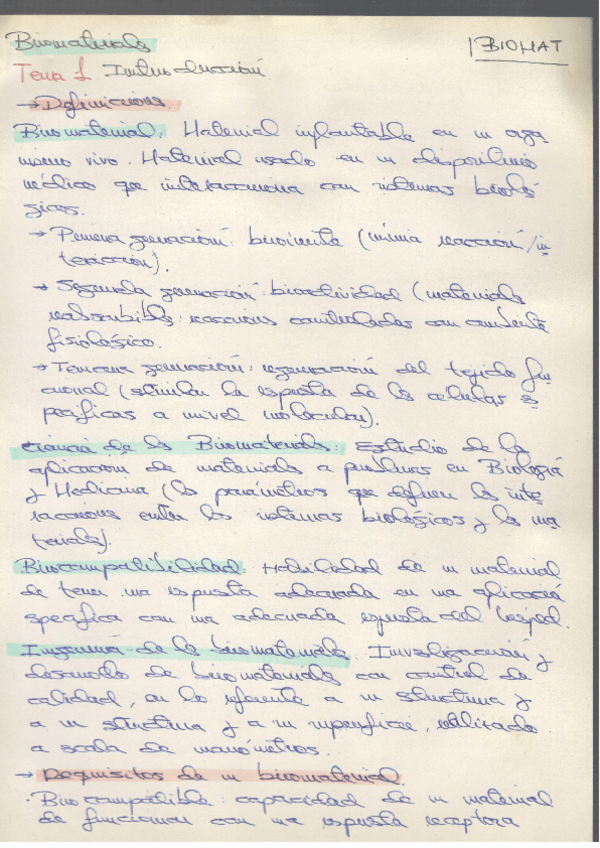 Biomateriales
BIOMAT
Tema 1 Introducción
→ Definiciones
Biomaterial: Material implantable en un orga
nismo vivo. Material usado en un dispositivo
médico que interacciona con sistemas bioló
gicos.
→ Primera generación: bioinerte (mínima reacción/in
teracción).
→ Segunda generación: bioactividad (materiales
reabsorbibles: reacciones controladas con ambiente
fisiológico.
→ Tercera generación: regeneración del tejido fun
cional (estimular la respuesta de las células es
pecíficas a nivel molecular).
Ciencia de los Biomateriales: Estudio de la
aplicación de materiales a problemas en Biología
y Medicina (los parámetros que definen las inte
racciones entre los sistemas biológicos y los ma
teriales).
Biocompatibilidad: Habilidad de un material
de tener una respuesta adecuada en una aplicación
específica con una adecuada respuesta del huésped.
Ingeniería de los biomateriales. Investigación y
desarrollo de biomateriales con control de
calidad, en lo referente a su estructura y
a su estructura y a su superficie, realizado
a escala de nanómetros.
→ Requisitos de un biomaterial
· Biocompatible: capacidad de un material
de funcionar con una respuesta receptora